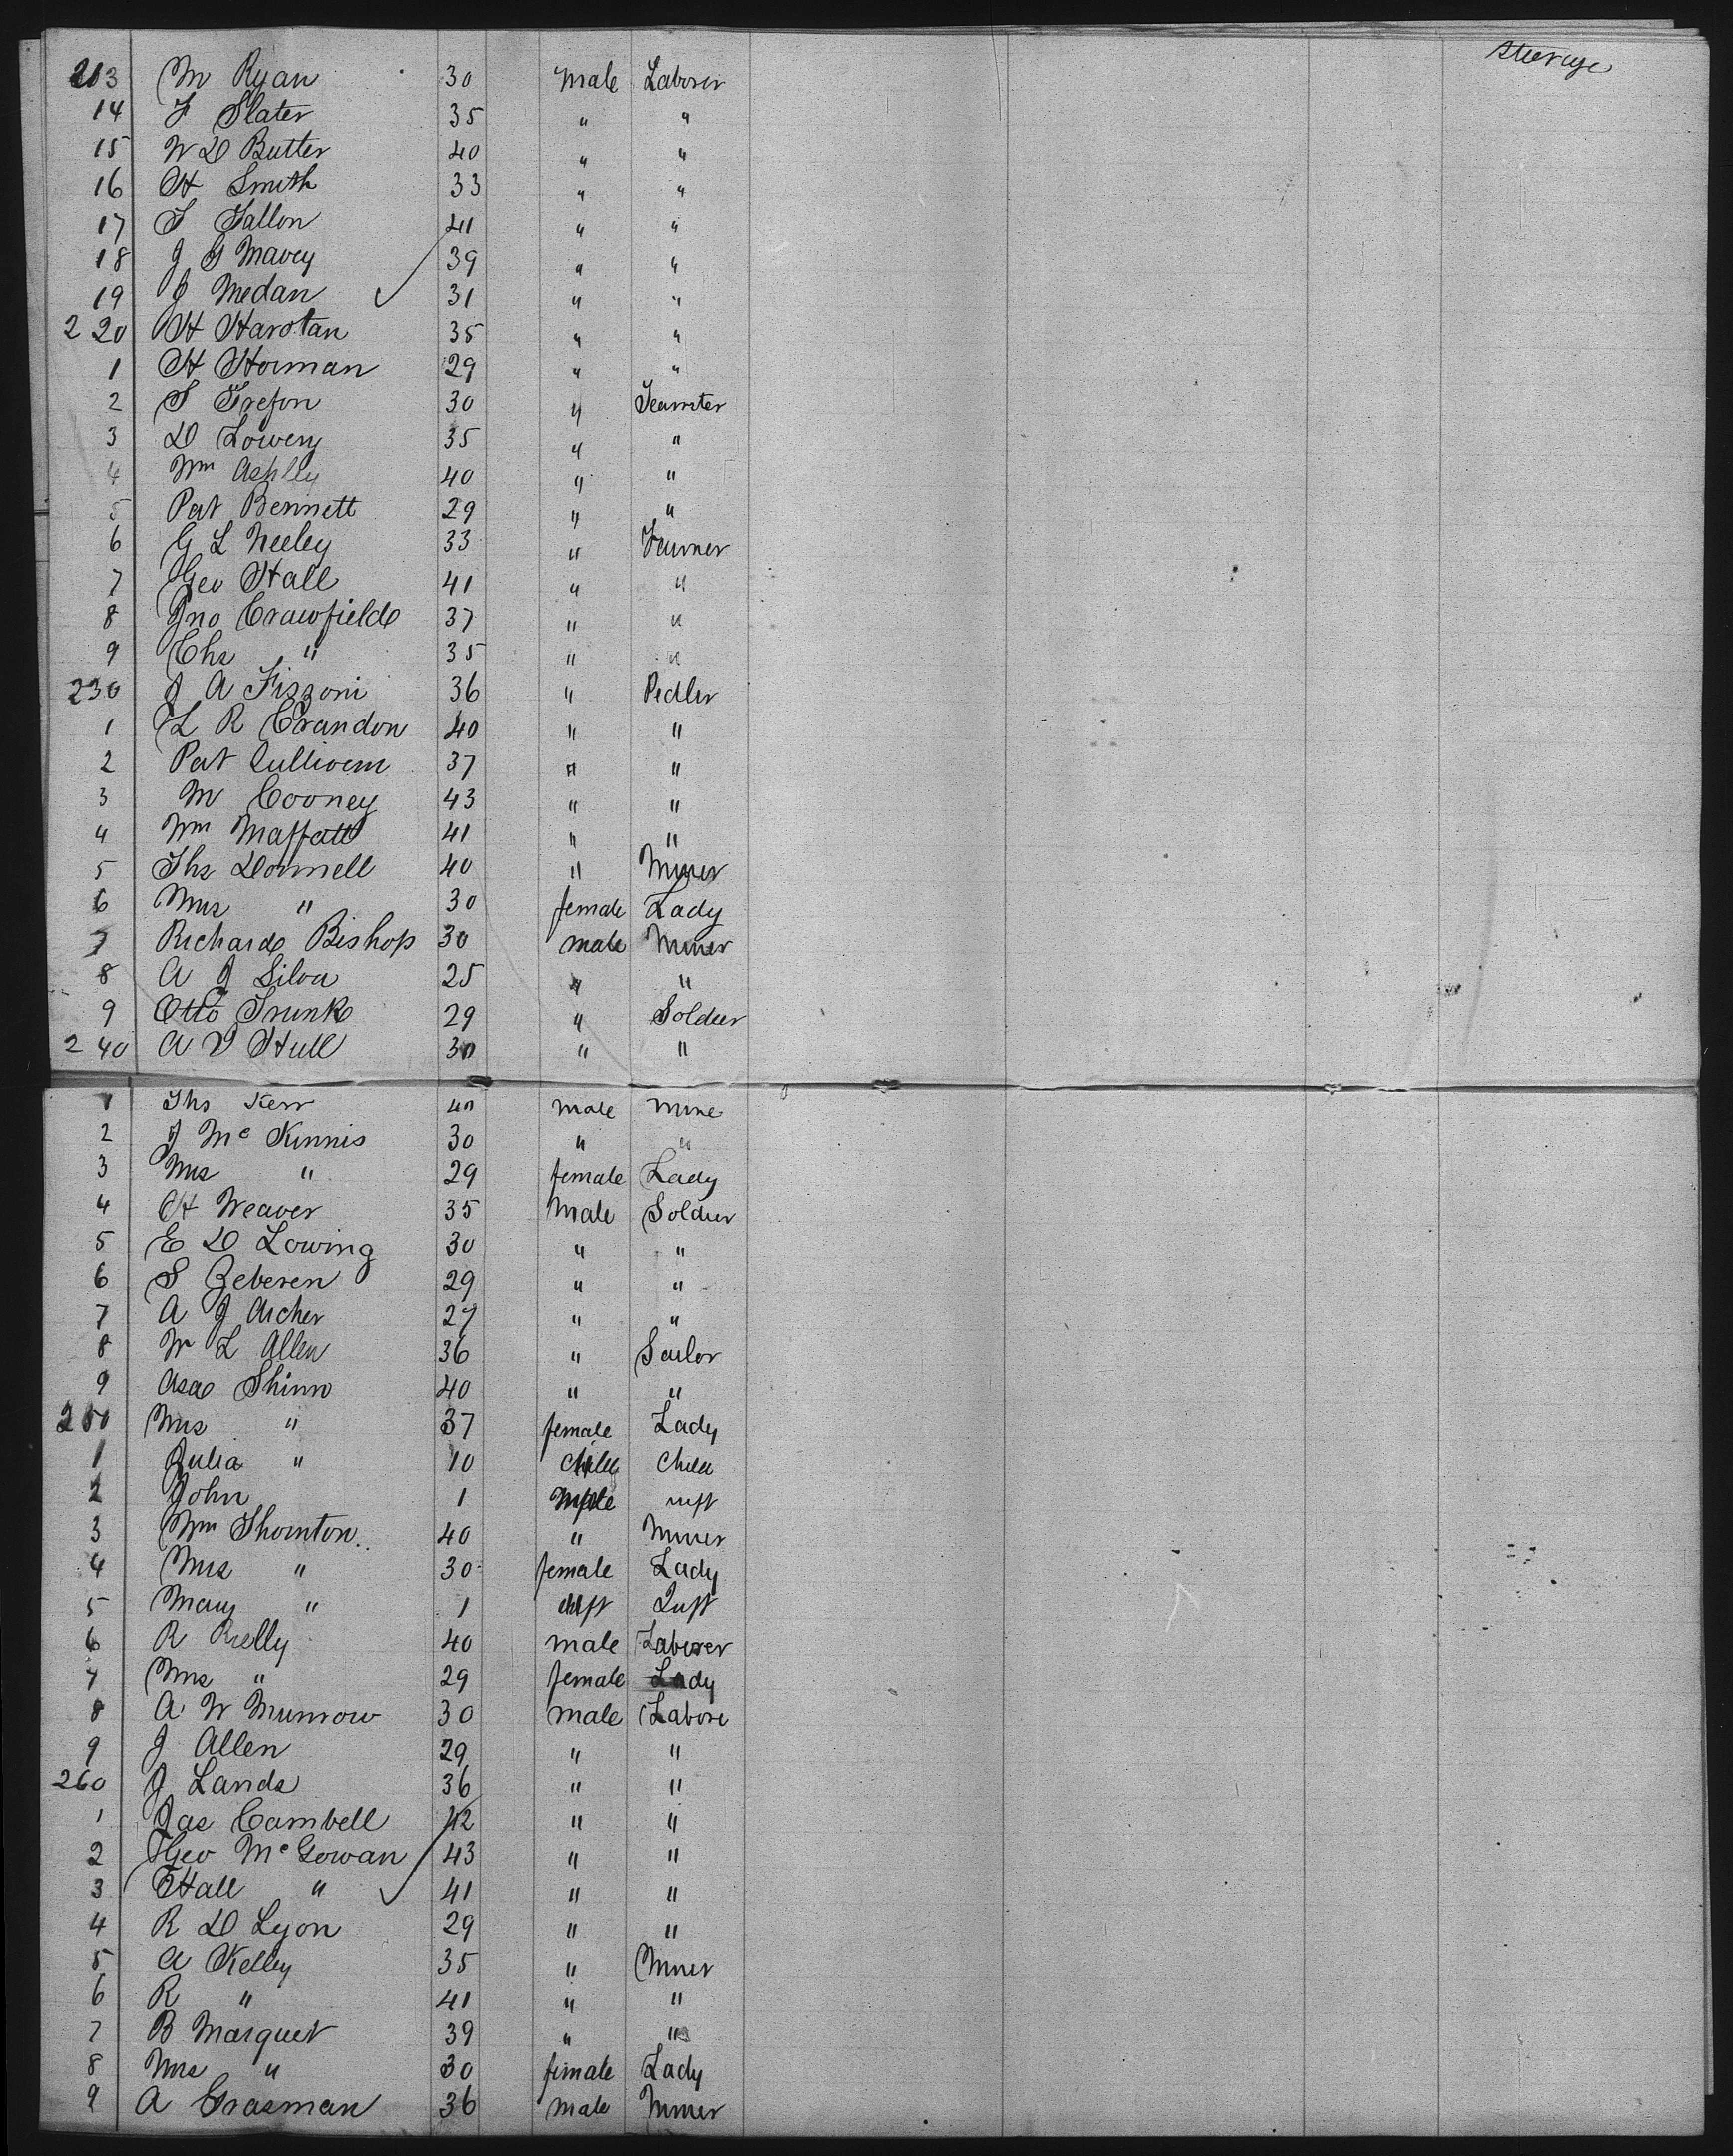 Steerage
213 M Ryan 30 Male Laborer
14 F Slater 35 " "
15 W D Butter 40 " "
16 H Smith 33 " "
17 T Fallon 41 " "
18 J G Mavey 39 " "
19 J Medan 31 " "
220 H Harotan 35 " "
1 H Horman 29 " "
2 S Trefon 30 " Teamster
3 D Lowery 35 " "
4 Wm Ashley 40 " "
5 Pat Bennett 29 " "
6 G L Neeley 33 " Farmer
7 Geo Hall 41 " "
8 Jno Crawfield 37 " "
9 Chs " 35 " "
230 J A Fizzoni 36 " Pedler
1 L R Crandon 40 " "
2 Pat Sullivan 37 " "
3 M Cooney 43 " "
4 Wm Maffatt 41 " "
5 Ths Donnell 40 " Miner
6 Mrs " 30 female Lady
7 Richard Bishop 30 male Miner
8 A J Silva 25 " "
9 Otto Trunk 29 " Soldier
240 A V Hull 30 " "
1 Ths Kerr 40 male mine
2 J Mc Kinnis 30 " "
3 Mrs " 29 female Lady
4 H Weaver 35 Male Soldier
5 E D Lowing 30 " "
6 S Zeberen 29 " "
7 A J Archer 27 " "
8 W L Allen 36 " Sailor
9 Asa Shinn 40 " "
250 Mrs " 37 female Lady
1 Julia " 10 child Child
2 John 1 male inft
3 Wm Thornton 40 " Miner
4 Mrs " 30 female Lady
5 Mary " 1 inft Inft
6 R Rielly 40 male Laborer
7 Mrs " 29 female Lady
8 A W Munrow 30 male Labore
9 J Allen 29 " "
260 J Lands 36 " "
1 Jas Cambell 42 " "
2 Geo Mc Gowan 43 " "
3 Hall " 41 " "
4 R D Lyon 29 " "
5 A Kelley 35 " Miner
6 R " 41 " "
7 B Marquet 39 " "
8 Mrs " 30 female Lady
9 A Grasman 36 male Miner